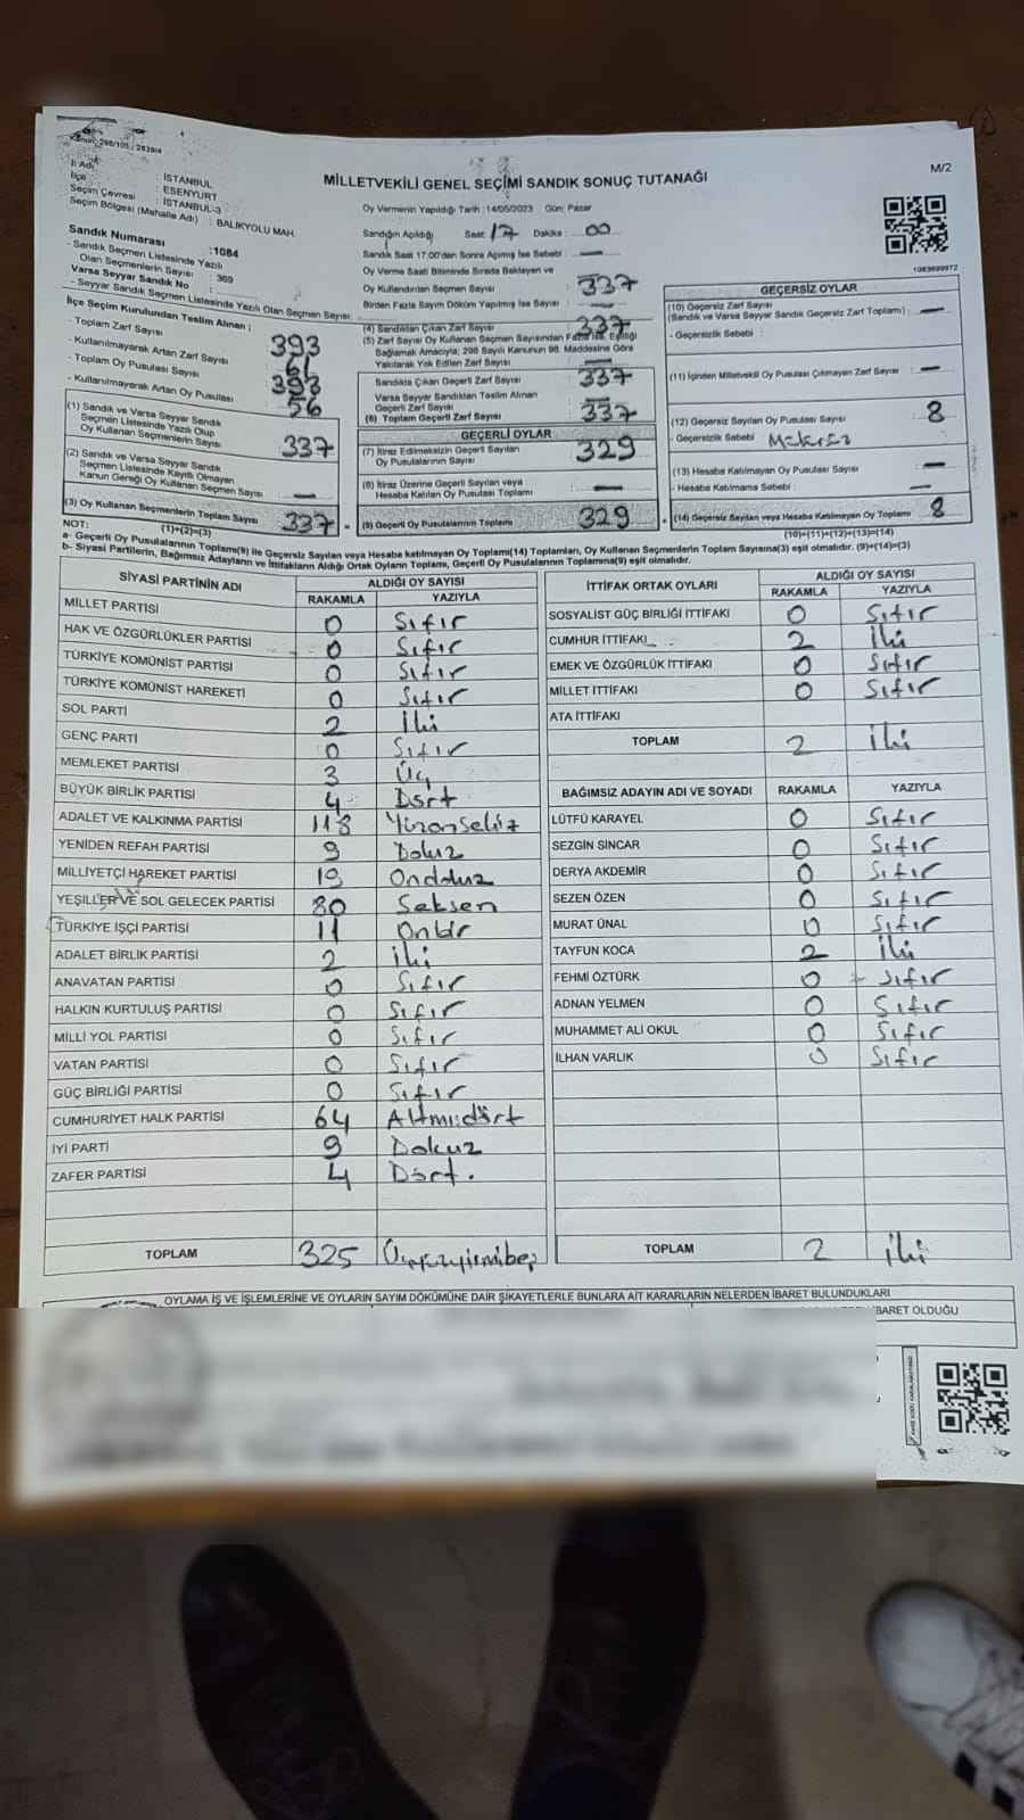 M/2
MİLLETVEKİLİ GENEL SEÇİMİ SANDIK SONUÇ TUTANAĞI
İl Adı : İSTANBUL
İlçe : ESENYURT
Seçim Çevresi : İSTANBUL-3
Seçim Bölgesi (Mahalle Adı) : BALIKYOLU MAH.
Sandık Numarası :1084
- Sandık Seçmen Listesinde Yazılı
Olan Seçmenlerin Sayısı : 369
Varsa Seyyar Sandık No :
- Seyyar Sandık Seçmen Listesinde Yazılı Olan Seçmen Sayısı:
Oy Vermenin Yapıldığı Tarih : 14/05/2023 Gün: Pazar
Sandığın Açıldığı Saat: 17 Dakika : 00
Sandık Saat 17.00'den Sonra Açılmış İse Sebebi : —
Oy Verme Saati Bitiminde Sırada Bekleyen ve
Oy Kullandırılan Seçmen Sayısı : 337
Birden Fazla Sayım Döküm Yapılmış İse Sayısı : —
İlçe Seçim Kurulundan Teslim Alınan ;
- Toplam Zarf Sayısı : 393
- Kullanılmayarak Artan Zarf Sayısı
- Toplam Oy Pusulası Sayısı : 393
- Kullanılmayarak Artan Oy Pusulası : 56
(1) Sandık ve Varsa Seyyar Sandık
Seçmen Listesinde Yazılı Olup
Oy Kullanan Seçmenlerin Sayısı : 337
(2) Sandık ve Varsa Seyyar Sandık
Seçmen Listesinde Kayıtlı Olmayan
Kanun Gereği Oy Kullanan Seçmen Sayısı : —
(3) Oy Kullanan Seçmenlerin Toplam Sayısı : 337
(1)+(2)=(3)
(4) Sandıktan Çıkan Zarf Sayısı : 337
(5) Zarf Sayısı Oy Kullanan Seçmen Sayısından Fazla İse, Eşitliği
Sağlamak Amacıyla; 298 Sayılı Kanunun 98. Maddesine Göre
Yakılarak Yok Edilen Zarf Sayısı : —
Sandıkta Çıkan Geçerli Zarf Sayısı : 337
Varsa Seyyar Sandıktan Teslim Alınan
Geçerli Zarf Sayısı : —
(6) Toplam Geçerli Zarf Sayısı : 337
GEÇERLİ OYLAR
(7) İtiraz Edilmeksizin Geçerli Sayılan
Oy Pusulalarının Sayısı : 329
(8) İtiraz Üzerine Geçerli Sayılan veya
Hesaba Katılan Oy Pusulası Toplamı : —
(9) Geçerli Oy Pusulalarının Toplamı : 329
1083699972
GEÇERSİZ OYLAR
(10) Geçersiz Zarf Sayısı
(Sandık ve Varsa Seyyar Sandık Geçersiz Zarf Toplam) : —
- Geçersizlik Sebebi :
(11) İçinden Milletvekili Oy Pusulası Çıkmayan Zarf Sayısı : —
(12) Geçersiz Sayılan Oy Pusulası Sayısı : 8
- Geçersizlik Sebebi :
(13) Hesaba Katılmayan Oy Pusulası Sayısı : —
- Hesaba Katılmama Sebebi : —
(14) Geçersiz Sayılan veya Hesaba Katılmayan Oy Toplamı : 8
(10)+(11)+(12)+(13)=(14)
NOT:
a- Geçerli Oy Pusulalarının Toplamı(9) ile Geçersiz Sayılan veya Hesaba katılmayan Oy Toplamı(14) Toplamları, Oy Kullanan Seçmenlerin Toplam Sayısına(3) eşit olmalıdır. (9)+(14)=(3)
b- Siyasi Partilerin, Bağımsız Adayların ve İttifakların Aldığı Ortak Oyların Toplamı, Geçerli Oy Pusulalarının Toplamına(9) eşit olmalıdır.
SİYASİ PARTİNİN ADI ALDIĞI OY SAYISI
RAKAMLA YAZIYLA
MİLLET PARTİSİ 0 Sıfır
HAK VE ÖZGÜRLÜKLER PARTİSİ 0 Sıfır
TÜRKİYE KOMÜNİST PARTİSİ 0 Sıfır
TÜRKİYE KOMÜNİST HAREKETİ 0 Sıfır
SOL PARTİ 2 İki
GENÇ PARTİ 0 Sıfır
MEMLEKET PARTİSİ 3 Üç
BÜYÜK BİRLİK PARTİSİ 4 Dört
ADALET VE KALKINMA PARTİSİ 118 Yüzonsekiz
YENİDEN REFAH PARTİSİ 9 Dokuz
MİLLİYETÇİ HAREKET PARTİSİ 19 Ondokuz
YEŞİLLER VE SOL GELECEK PARTİSİ 80 Seksen
TÜRKİYE İŞÇİ PARTİSİ 11 Onbir
ADALET BİRLİK PARTİSİ 2 İki
ANAVATAN PARTİSİ 0 Sıfır
HALKIN KURTULUŞ PARTİSİ 0 Sıfır
MİLLİ YOL PARTİSİ 0 Sıfır
VATAN PARTİSİ 0 Sıfır
GÜÇ BİRLİĞİ PARTİSİ 0 Sıfır
CUMHURİYET HALK PARTİSİ 64 Altmışdört
İYİ PARTİ 9 Dokuz
ZAFER PARTİSİ 4 Dört.
TOPLAM 325 Üçyüzyirmibeş
İTTİFAK ORTAK OYLARI ALDIĞI OY SAYISI
RAKAMLA YAZIYLA
SOSYALİST GÜÇ BİRLİĞİ İTTİFAKI 0 Sıfır
CUMHUR İTTİFAKI 2 İki
EMEK VE ÖZGÜRLÜK İTTİFAKI 0 Sıfır
MİLLET İTTİFAKI 0 Sıfır
ATA İTTİFAKI
TOPLAM 2 İki
BAĞIMSIZ ADAYIN ADI VE SOYADI RAKAMLA YAZIYLA
LÜTFÜ KARAYEL 0 Sıfır
SEZGİN SİNCAR 0 Sıfır
DERYA AKDEMİR 0 Sıfır
SEZEN ÖZEN 0 Sıfır
MURAT ÜNAL 0 Sıfır
TAYFUN KOCA 2 İki
FEHMİ ÖZTÜRK 0 Sıfır
ADNAN YELMEN 0 Sıfır
MUHAMMET ALİ OKUL 0 Sıfır
İLHAN VARLIK 0 Sıfır
TOPLAM 2 İki
OYLAMA İŞ VE İŞLEMLERİNE VE OYLARIN SAYIM DÖKÜMÜNE DAİR ŞİKAYETLERLE BUNLARA AİT KARARLARIN NELERDEN İBARET BULUNDUKLARI
İBARET OLDUĞU